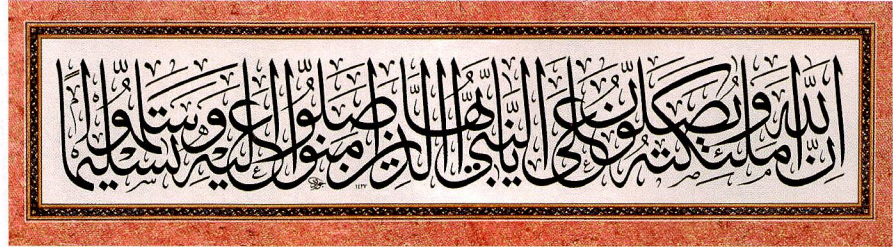 إن الله وملئكته يصلون على النبي يا أيها الذين آمنوا صلوا عليه وسلموا تسليما
١٤٣٢